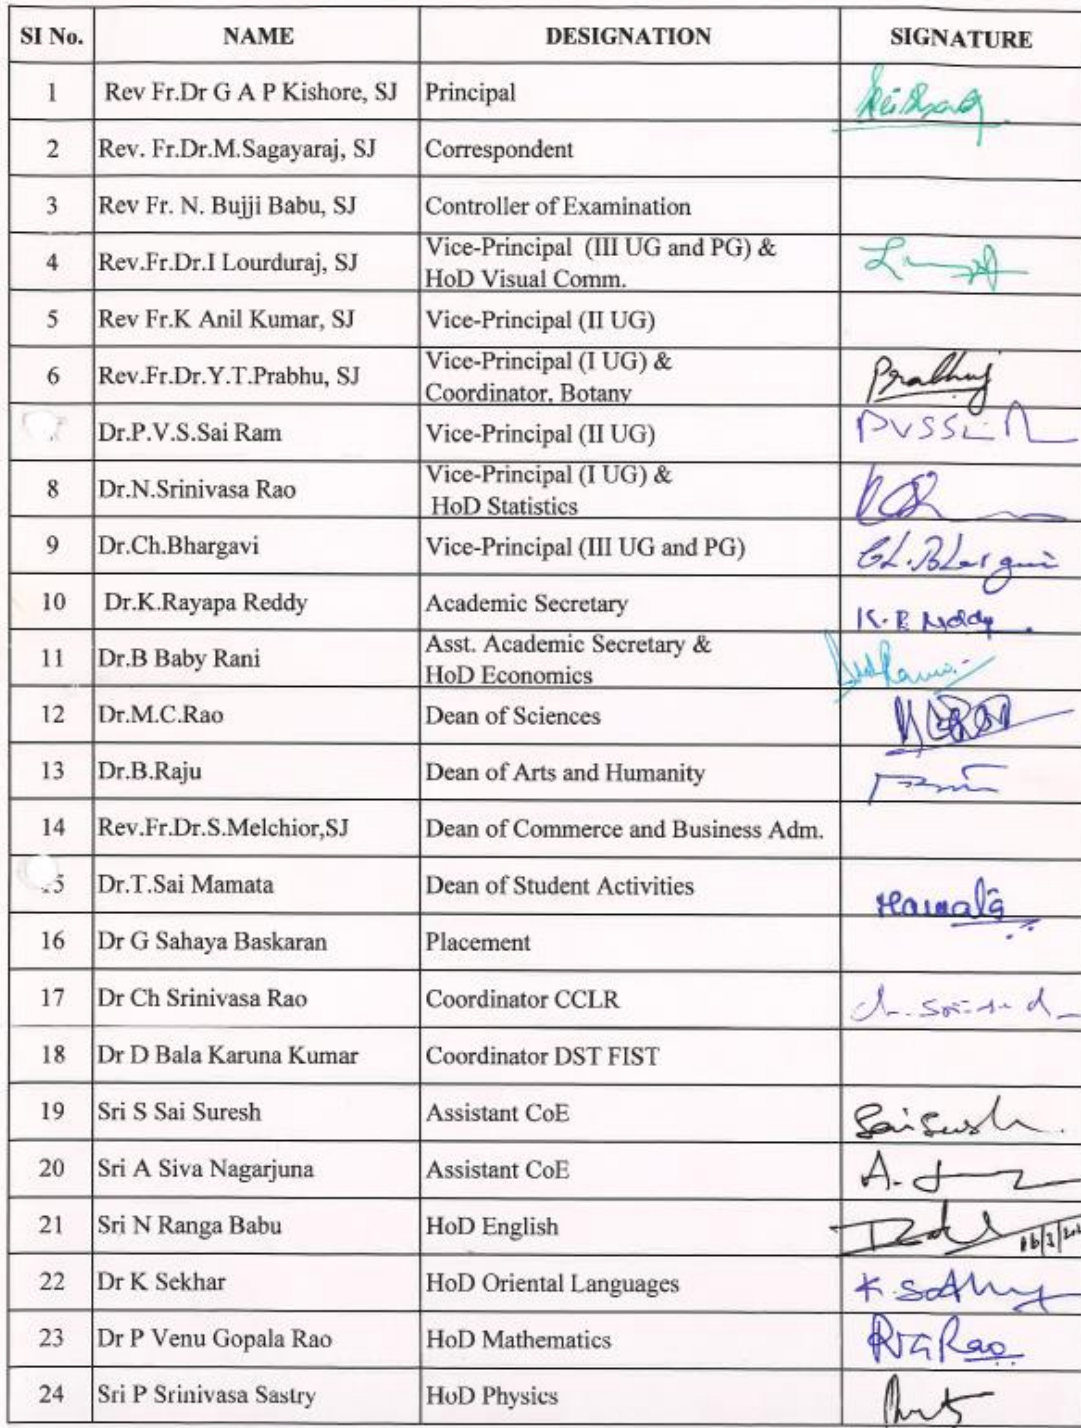 SI No. NAME DESIGNATION SIGNATURE
1 Rev Fr.Dr G A P Kishore, SJ Principal
2 Rev. Fr.Dr.M.Sagayaraj, SJ Correspondent
3 Rev Fr. N. Bujji Babu, SJ Controller of Examination
4 Rev.Fr.Dr.I Lourduraj, SJ Vice-Principal (III UG and PG) &
HoD Visual Comm.
5 Rev Fr.K Anil Kumar, SJ Vice-Principal (II UG)
6 Rev.Fr.Dr.Y.T.Prabhu, SJ Vice-Principal (I UG) &
Coordinator, Botany
Dr.P.V.S.Sai Ram Vice-Principal (II UG)
8 Dr.N.Srinivasa Rao Vice-Principal (I UG) &
HoD Statistics
9 Dr.Ch.Bhargavi Vice-Principal (III UG and PG)
10 Dr.K.Rayapa Reddy Academic Secretary K.R Reddy
11 Dr.B Baby Rani Asst. Academic Secretary &
HoD Economics
12 Dr.M.C.Rao Dean of Sciences
13 Dr.B.Raju Dean of Arts and Humanity
14 Rev.Fr.Dr.S.Melchior,SJ Dean of Commerce and Business Adm.
15 Dr.T.Sai Mamata Dean of Student Activities Mamata
16 Dr G Sahaya Baskaran Placement
17 Dr Ch Srinivasa Rao Coordinator CCLR
18 Dr D Bala Karuna Kumar Coordinator DST FIST
19 Sri S Sai Suresh Assistant CoE
20 Sri A Siva Nagarjuna Assistant CoE
21 Sri N Ranga Babu HoD English
22 Dr K Sekhar HoD Oriental Languages
23 Dr P Venu Gopala Rao HoD Mathematics PVG Rao
24 Sri P Srinivasa Sastry HoD Physics